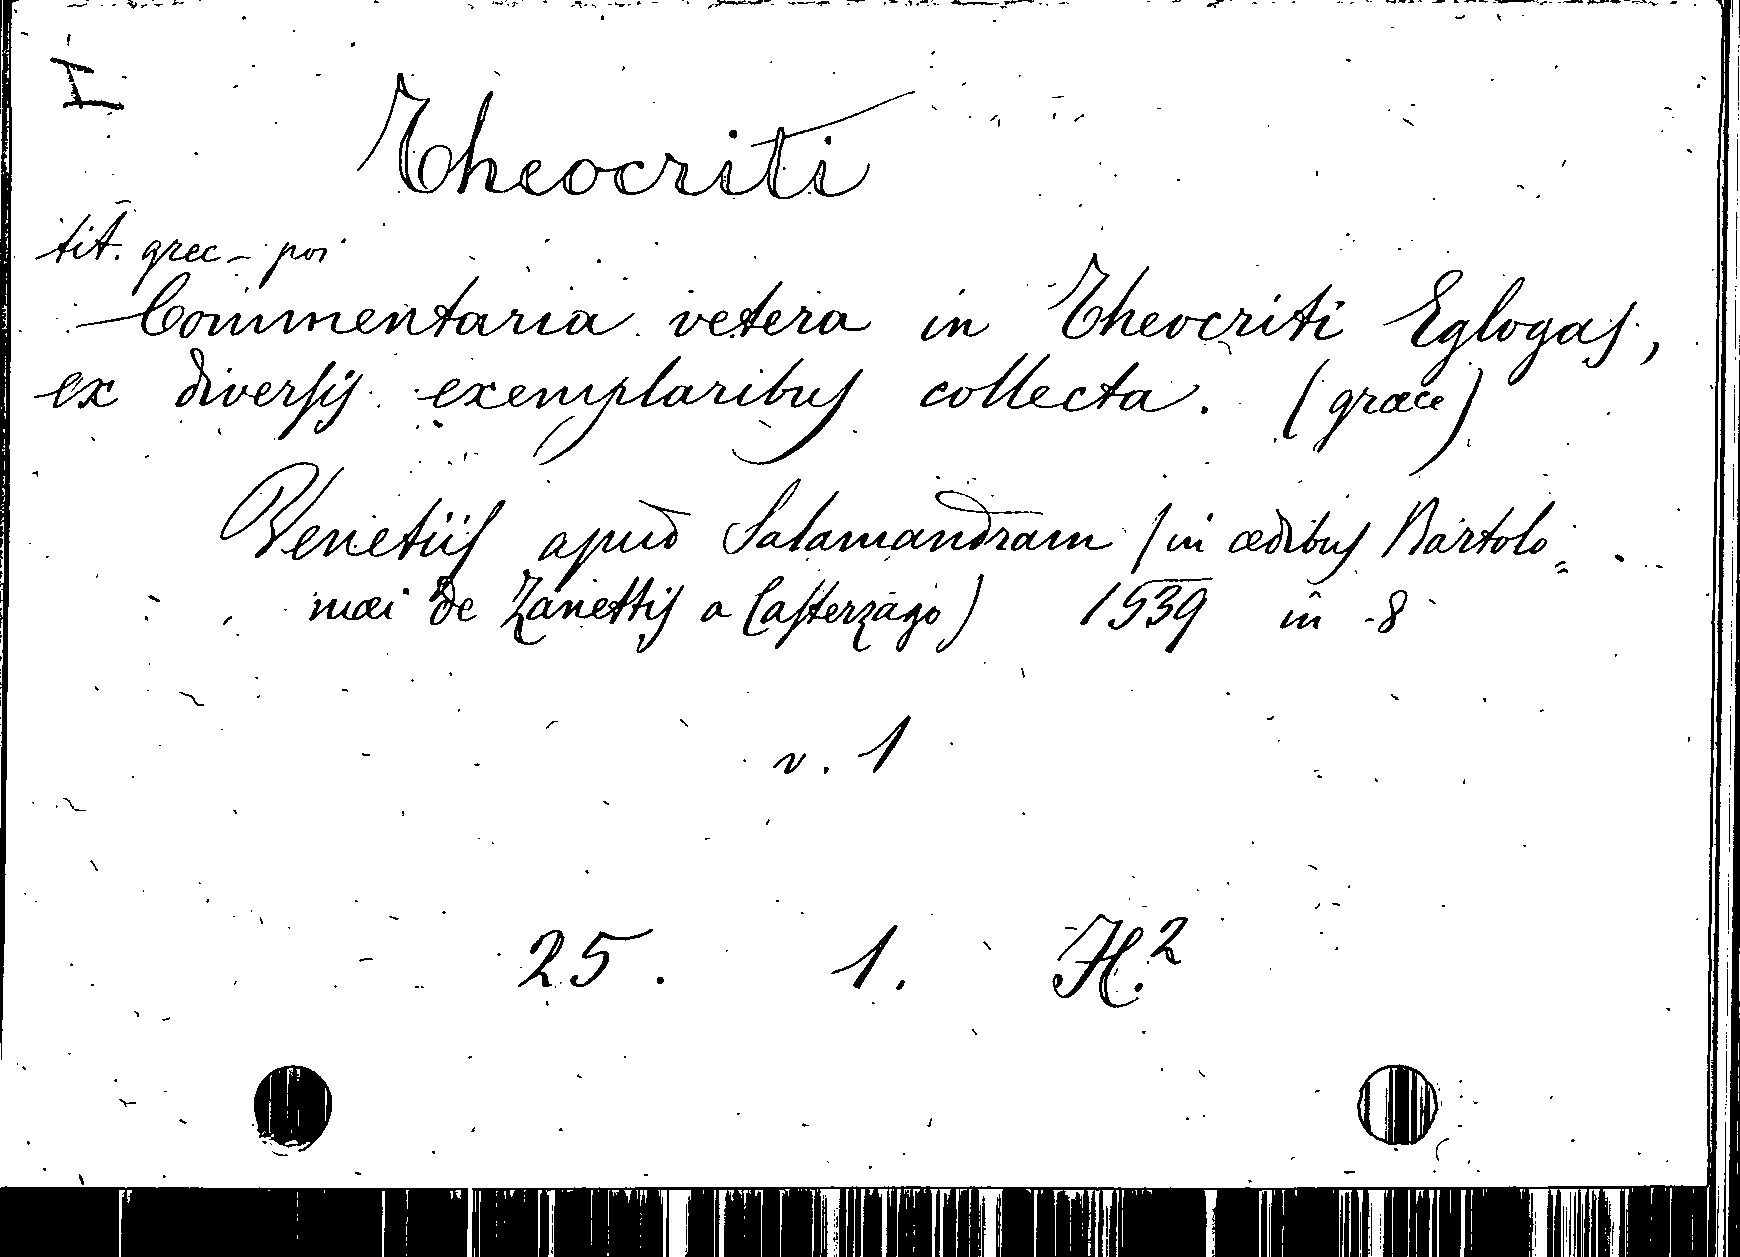 I
Theocriti
tit. grec - poi
Commentaria vetera in Theocriti Eglogas,
ex diversis exemplaribus collecta. (græce)
Venetiis apud Salamandram (in ædibus Bartolo=
mæi de Zanettis a Casterzago) 1539 in -8
v. 1
25. 1. H.2